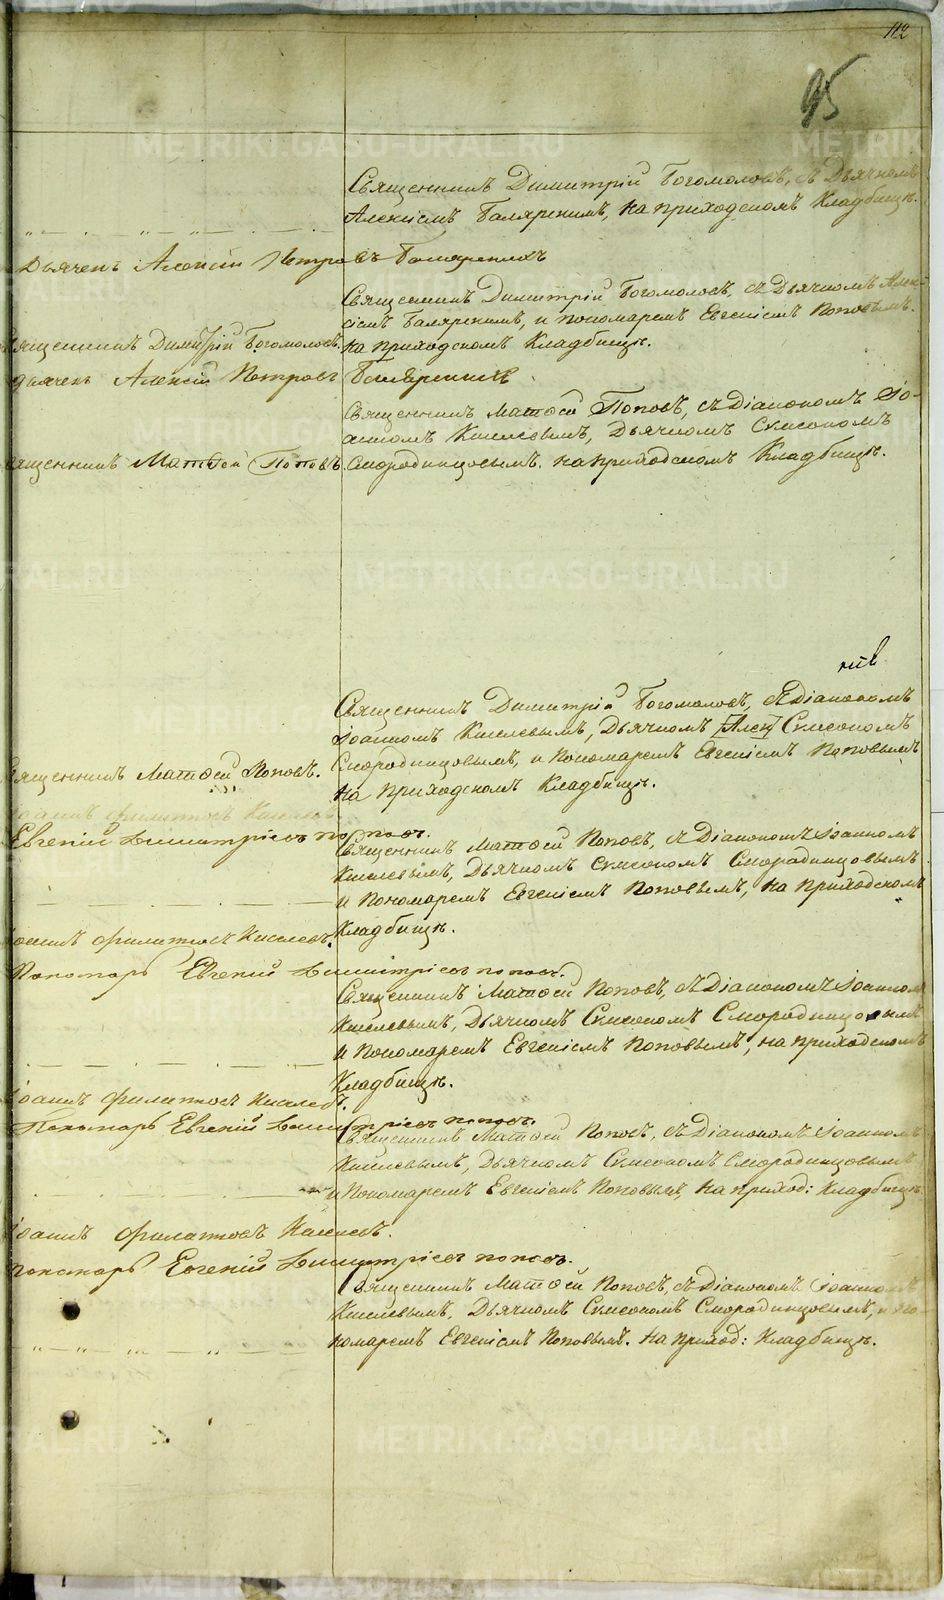 112
95
Священникъ Димитрій Богомоловъ, съ Дьячкомъ
Алексіемъ Боляренимъ, на приходскомъ Кладбищѣ.
Дьячекъ Алексій Петровъ
Священникъ Димитрій Богомоловъ, съ Дьячкомъ Алек-
сіемъ Боляренимъ, и пономаремъ Евгеніемъ Поповымъ.
Священникъ Димитрій Богомоловъ. на приходскомъ Кладбищѣ.
дьячекъ Алексій Петровъ
Священникъ Матѳей Поповъ, съ Діакономъ Іо-
анномъ Киселевымъ, Дьячкомъ
Священникъ Матѳей Поповъ. Смородинцовымъ. на приходскомъ Кладбищѣ.
Священникъ Димитрій Богомоловъ, съ Діакономъ
Іоанномъ Киселевымъ, Дьячкомъ [Алек]
Смородинцовымъ, и Пономаремъ Евгеніемъ Поповымъ
Священникъ Матѳей Поповъ.
на приходскомъ Кладбищѣ.
Іоаннъ Филатовъ Киселевъ
Евгеній Димитріевъ Поповъ.
Священникъ Матѳей Поповъ, съ Діакономъ Іоанномъ
Киселевымъ, Дьячкомъ Смородинцовымъ
и Пономаремъ Евгеніемъ Поповымъ, на приходскомъ
Кладбищѣ.
Іоаннъ Филатовъ Киселевъ.
Пономарь Евгеній Димитріевъ Поповъ.
Священникъ Матѳей Поповъ, съ Діакономъ Іоанномъ
Киселевымъ, Дьячкомъ Смородинцовымъ
и Пономаремъ Евгеніемъ Поповымъ, на приходскомъ
Кладбищѣ.
Іоаннъ Филатовъ Киселевъ.
Пономарь Евгеній Димитріевъ Поповъ.
Священникъ Матѳей Поповъ, съ Діакономъ Іоанномъ
Киселевымъ, Дьячкомъ Смородинцовымъ
и Пономаремъ Евгеніемъ Поповымъ, на приход: Кладбищѣ
Іоаннъ Филатовъ Киселевъ.
пономарь Евгеній Димитріевъ Поповъ.
Священникъ Матѳей Поповъ, съ Діакономъ Іоанномъ
Киселевымъ, Дьячкомъ Смородинцовымъ, и По-
номаремъ Евгеніемъ Поповымъ. на приход: Кладбищѣ.
METRIKI.GASO-URAL.RU